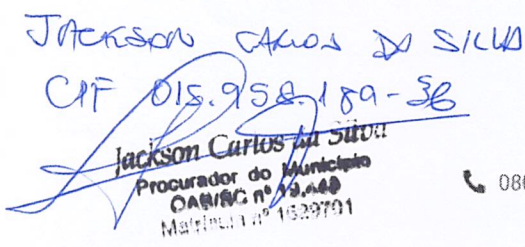 JACKSON CARLOS DA SILVA
CPF 015.958.189-36
Jackson Carlos da Silva
Procurador do Município
OAB/SC nº 19.440
Matrícula nº 1629701
080